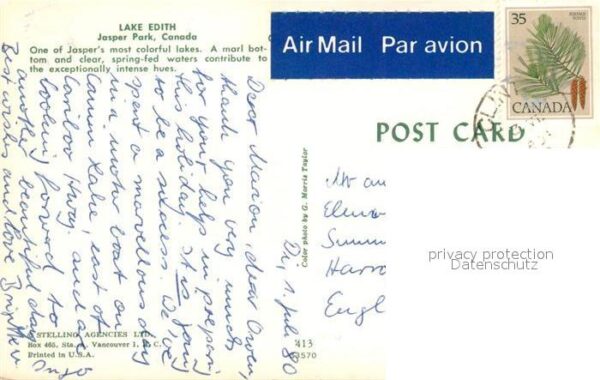 LAKE EDITH
Jasper Park, Canada
One of Jasper's most colorful lakes. A marl bot-
tom and clear, spring-fed waters contribute to
the exceptionally intense hues.
Air Mail Par avion
35
POSTAGE
POSTES
CANADA
POST CARD
Di, 1. Juli 80
Dear Marion, dear Owen,
thank you very much
for your help in preparing
this holiday. It is going
to be a success. We've
spent a marvellous day
in a motor boat on
Lake, east of
Hway. and are
looking forward to
another beautiful day
Best wishes and love
Color photo by G. Morris Taylor
Mr an
Summ
Harro
Engl
privacy protection
Datenschutz
STELLING AGENCIES LTD.
Box 465, Sta. Vancouver 1, B.C.
Printed in U.S.A.
413
63570